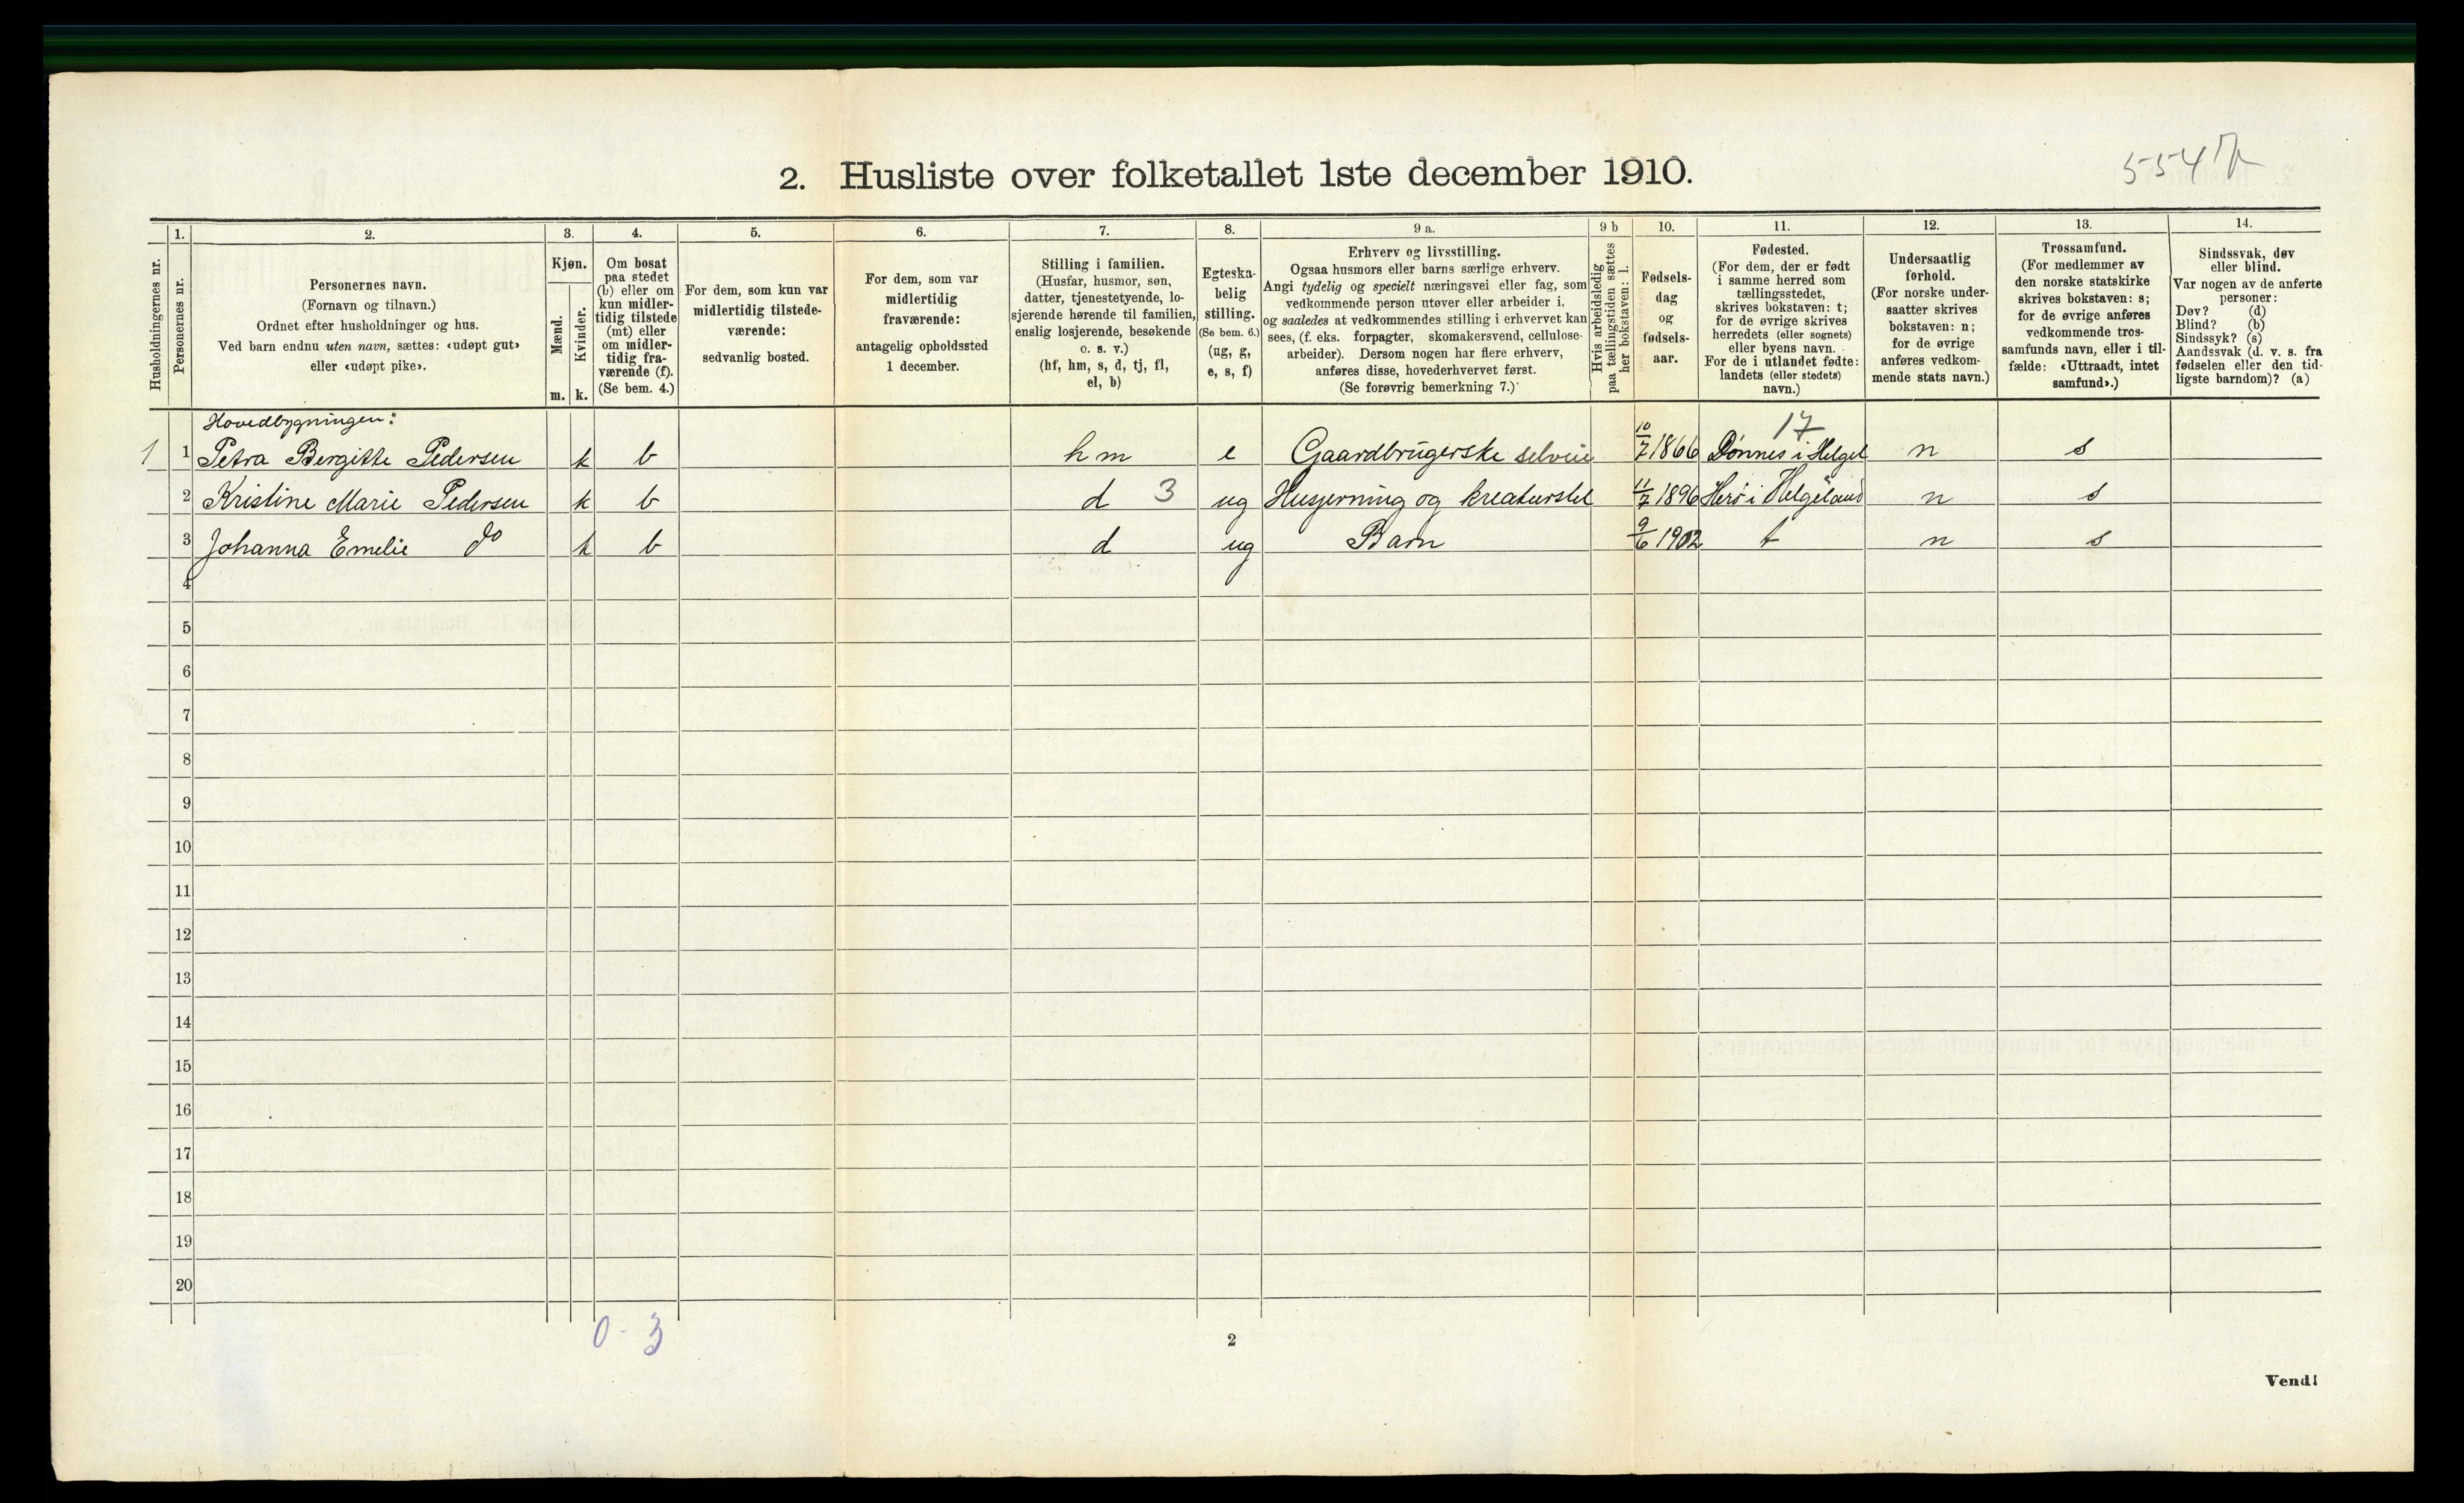 2. Husliste over folketallet 1ste december 1910.
1. 2. 3. 4. 5. 6. 7. 8. 9 a. 9 b 10. 11. 12. 13. 14.
Husholdningernes nr.
Personernes nr.
Personernes navn.
(Fornavn og tilnavn.)
Ordnet efter husholdninger og hus.
Ved barn endnu uten navn, sættes: «udøpt gut»
eller «udøpt pike».
Kjøn.
Mænd.
Kvinder.
m. k.
Om bosat
paa stedet
(b) eller om
kun midler-
tidig tilstede
(mt) eller
om midler-
tidig fra-
værende (f).
(Se bem. 4.)
For dem, som kun var
midlertidig tilstede-
værende:
sedvanlig bosted.
For dem, som var
midlertidig
fraværende:
antagelig opholdssted
1 december.
Stilling i familien.
(Husfar, husmor, søn,
datter, tjenestetyende, lo-
sjerende hørende til familien,
enslig losjerende, besøkende
o. s. v.)
(hf, hm, s, d, tj, fl,
el, b)
Egteska-
belig
stilling.
(Se bem. 6.)
(ug, g,
e, s, f)
Erhverv og livsstilling.
Ogsaa husmors eller barns særlige erhverv.
Angi tydelig og specielt næringsvei eller fag, som
vedkommende person utøver eller arbeider i,
og saaledes at vedkommendes stilling i erhvervet kan
sees, (f. eks. forpagter, skomakersvend, cellulose-
arbeider). Dersom nogen har flere erhverv,
anføres disse, hovederhvervet først.
(Se forøvrig bemerkning 7.)
Hvis arbeidsledig
paa tællingstiden sættes
her bokstaven: l.
Fødsels-
dag
og
fødsels-
aar.
Fødested.
(For dem, der er født
i samme herred som
tællingsstedet,
skrives bokstaven: t;
for de øvrige skrives
herredets (eller sognets)
eller byens navn.
For de i utlandet fødte:
landets (eller stedets)
navn.)
Undersaatlig
forhold.
(For norske under-
saatter skrives
bokstaven: n;
for de øvrige
anføres vedkom-
mende stats navn.)
Trossamfund.
(For medlemmer av
den norske statskirke
skrives bokstaven: s;
for de øvrige anføres
vedkommende tros-
samfunds navn, eller i til-
fælde: «Uttraadt, intet
samfund».)
Sindssvak, døv
eller blind.
Var nogen av de anførte
personer:
Døv? (d)
Blind? (b)
Sindssyk? (s)
Aandssvak (d. v. s. fra
fødselen eller den tid-
ligste barndom)? (a)
Hovedbygningen:
17
1 1 Petra Bergitte Pedersen k b hm e Gaardbrugerske selveie 10/7 1866 Dønnes i Helgel n s
2 Kristine Marie Pedersen k b d 3 ug Husjerning og kreaturstel 11/7 1896 Herø i Helgeland n s
3 Johanna Emelie do k b d ug Barn 9/6 1902 t n s
4
5
6
7
8
9
10
11
12
13
14
15
16
17
18
19
20
0 - 3
2
Vend!